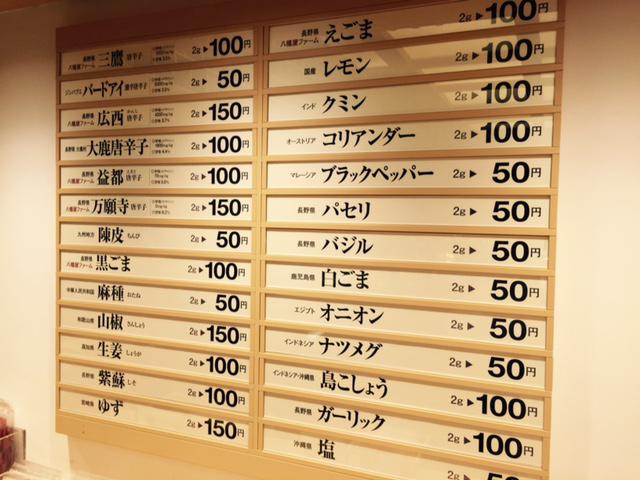 長野県 八幡屋ファーム 三鷹 唐辛子 2g ▶ 100円
ジンバブエ バードアイ 唐辛子 2g ▶ 50円
長野県 八幡屋ファーム 広西 唐辛子 2g ▶ 150円
長野県 大鹿村 大鹿唐辛子 2g ▶ 100円
長野県 八幡屋ファーム 益都 唐辛子 2g ▶ 100円
長野県 八幡屋ファーム 万願寺 唐辛子 2g ▶ 150円
九州地方 陳皮 ちんぴ 2g ▶ 50円
長野県 八幡屋ファーム 黒ごま 2g ▶ 100円
中華人民共和国 麻種 おたね 2g ▶ 50円
和歌山県 山椒 さんしょう 2g ▶ 150円
高知県 生姜 しょうが 2g ▶ 100円
長野県 紫蘇 しそ 2g ▶ 100円
宮崎県 ゆず 2g ▶ 150円
長野県 八幡屋ファーム えごま 2g ▶ 100円
国産 レモン 2g ▶ 100円
インド クミン 2g ▶ 100円
オーストリア コリアンダー 2g ▶ 100円
マレーシア ブラックペッパー 2g ▶ 50円
長野県 パセリ 2g ▶ 50円
長野県 バジル 2g ▶ 50円
鹿児島県 白ごま 2g ▶ 50円
エジプト オニオン 2g ▶ 50円
インドネシア ナツメグ 2g ▶ 50円
インドネシア・沖縄県 島こしょう 2g ▶ 100円
長野県 ガーリック 2g ▶ 100円
沖縄県 塩 2g ▶ 50円